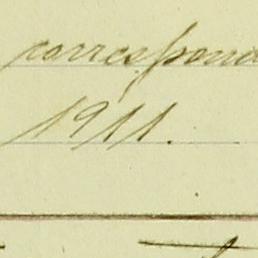 correspond
1911.